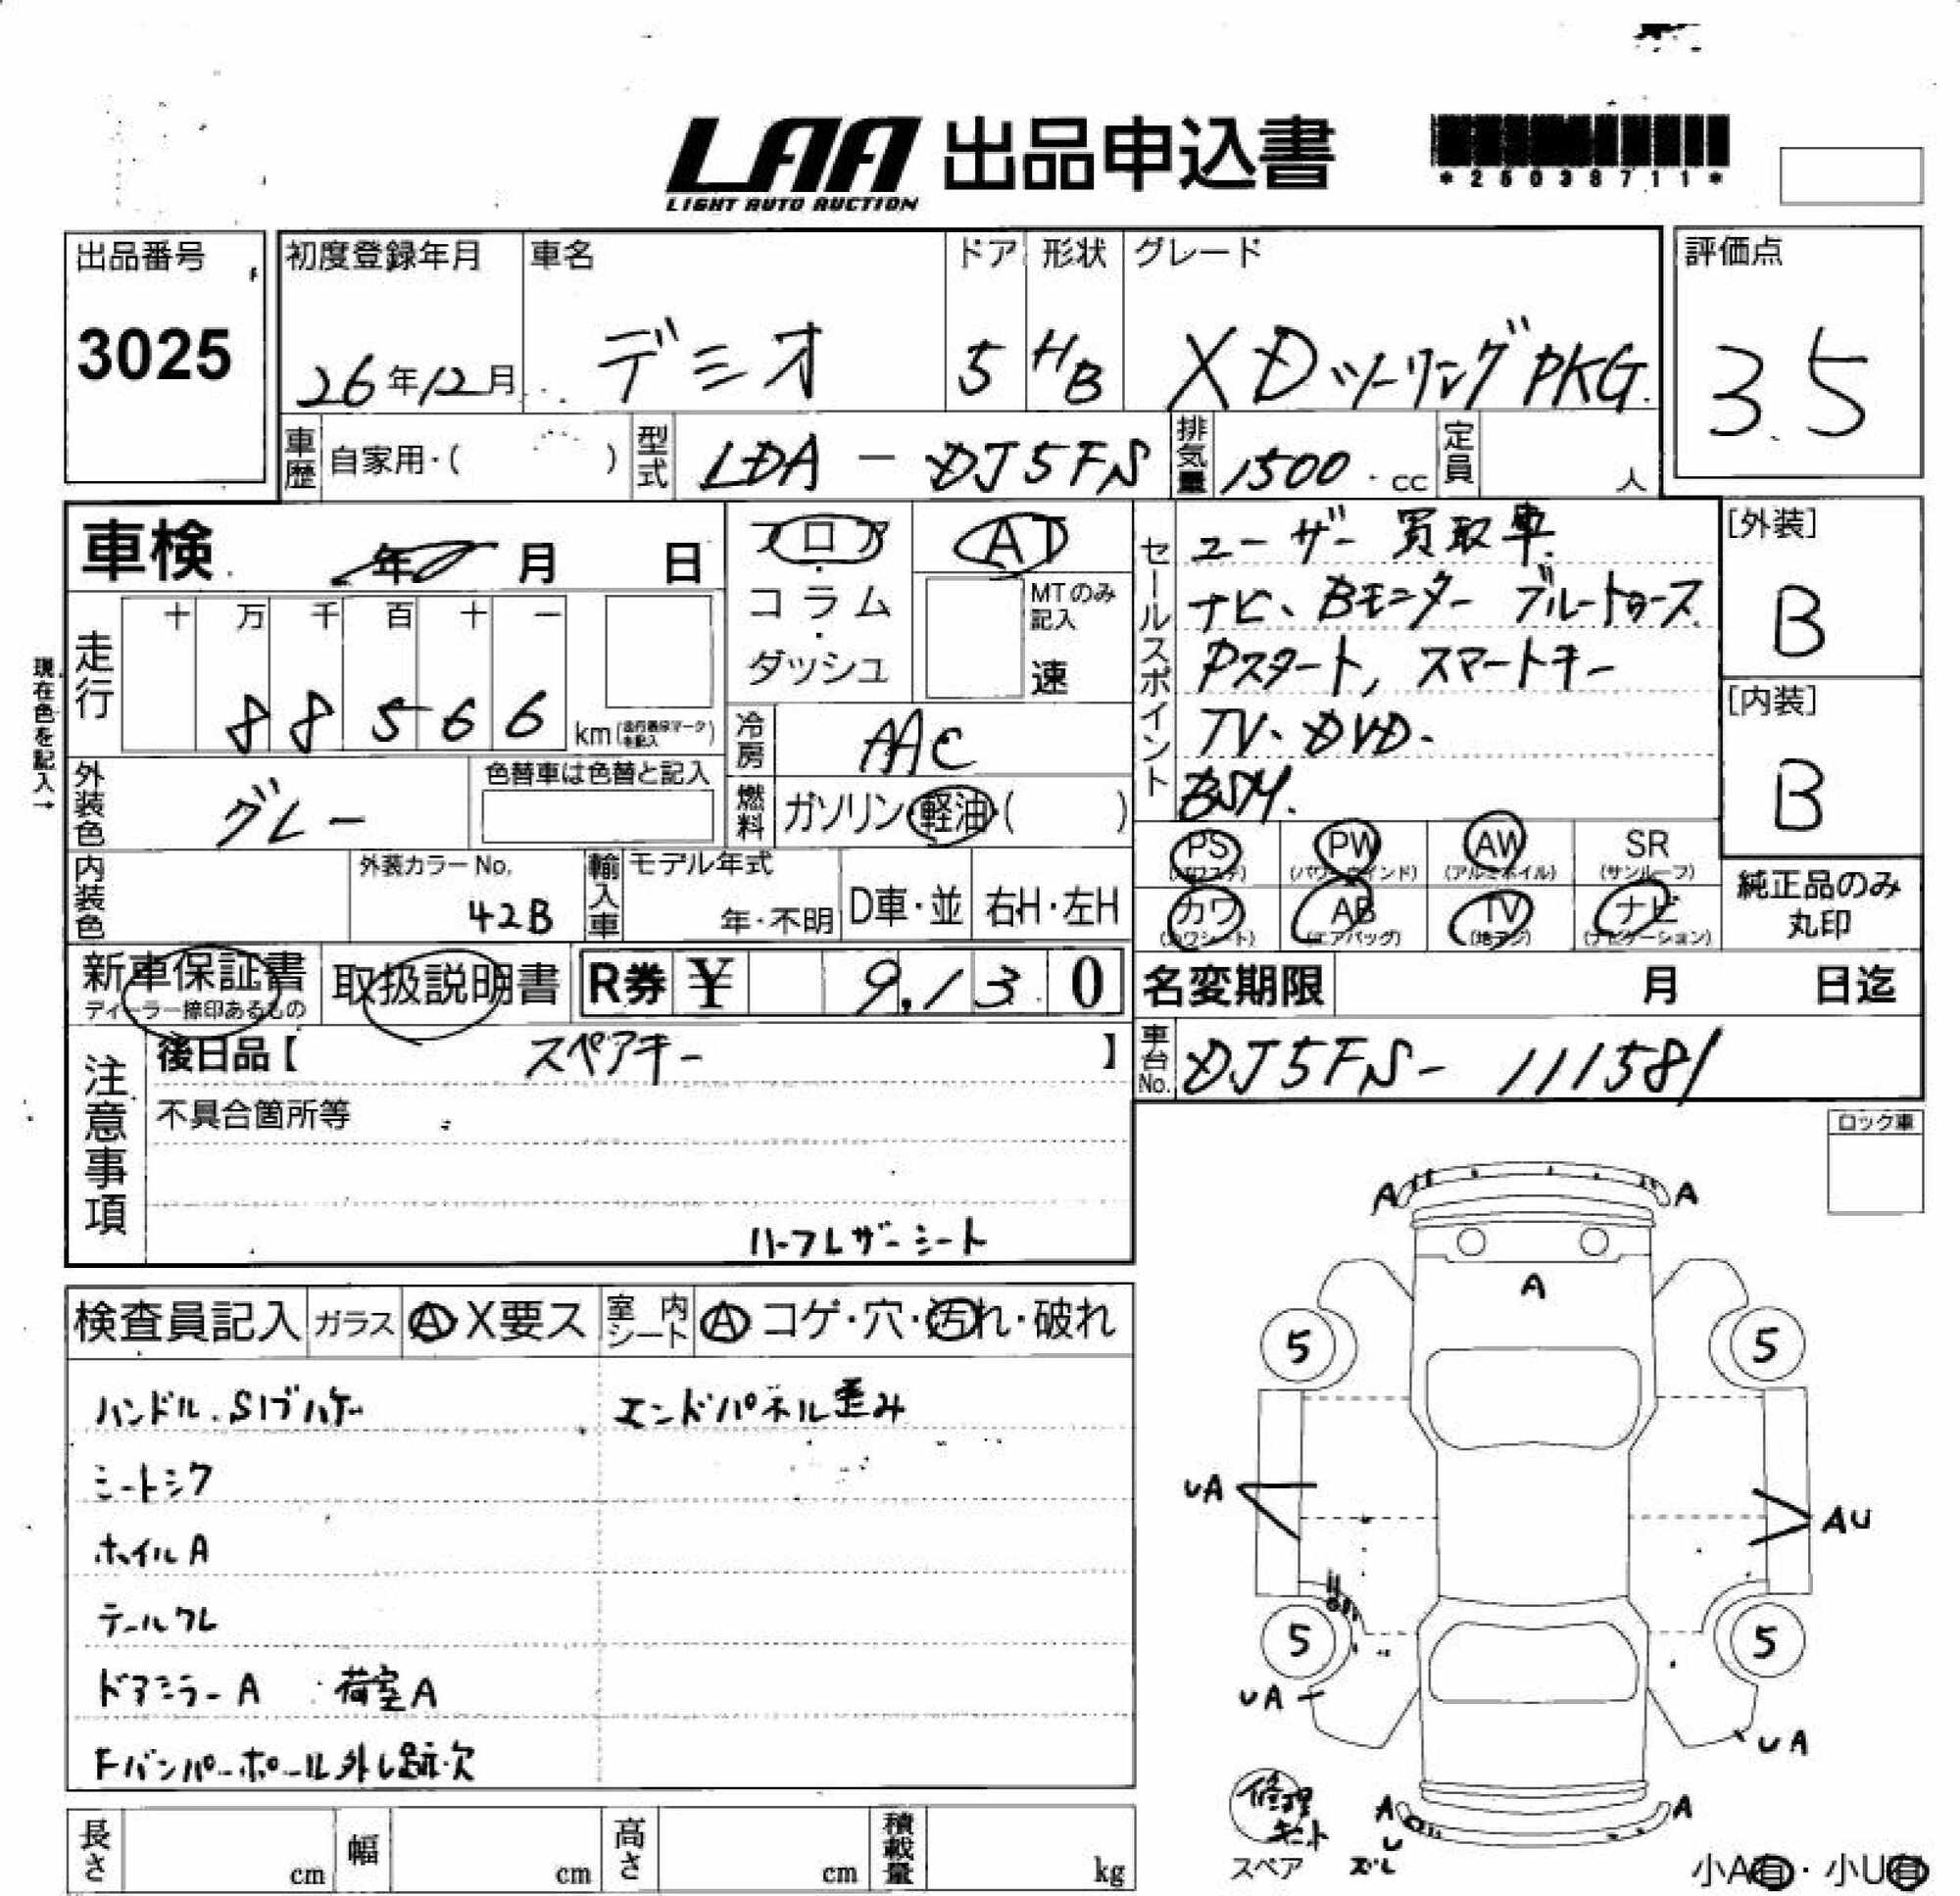 LAA 出品申込書
LIGHT AUTO AUCTION
*25038711*
出品番号
3025
初度登録年月
26年12月
車名
デミオ
ドア
5
形状
HB
グレード
XDツーリングPKG.
評価点
3.5
車歴 自家用・( )
型式 LDA - DJ5FS
排気量 1500 cc
定員 人
車検 年 月 日
フロア・コラム・ダッシュ
AT
MTのみ記入
速
現在色を記入→
走行
十 万 千 百 十 一
88566 km
冷房 AAC
外装色 グレー
色替車は色替と記入
燃料 ガソリン・軽油・( )
内装色
外装カラーNo.
42B
輸入車
モデル年式
年・不明
D車・並
右H・左H
セールスポイント
ユーザー買取車.
ナビ、Bモニター ブルートゥース
Pスタート, スマートキー
TV、DVD.
BSM.
[外装]
B
[内装]
B
PS
(パワステ)
PW
(パワーウインド)
AW
(アルミホイル)
SR
(サンルーフ)
カワ
(カワシート)
AB
(エアバッグ)
TV
(地デジ)
ナビ
(ナビゲーション)
純正品のみ
丸印
新車保証書
ディーラー捺印あるもの
取扱説明書
R券 ¥ 9,130
名変期限 月 日迄
車台No. DJ5FS- 111581
注意事項
後日品【 スペアキー 】
不具合箇所等
ハーフレザーシート
ロック車
検査員記入
ガラス A X要ス
室内シート A コゲ・穴・汚れ・破れ
ハンドル.Sノブハゲ
エンドパネル歪み
シートシワ
ホイルA
テールワレ
ドアミラーA 荷室A
Fバンパーポール外し跡・欠
A A
A
5 5
UA AU
5 5
UA
UA
修理キット
スペア
A A
U
ズレ
小A有・小U有
長さ cm
幅 cm
高さ cm
積載量 kg